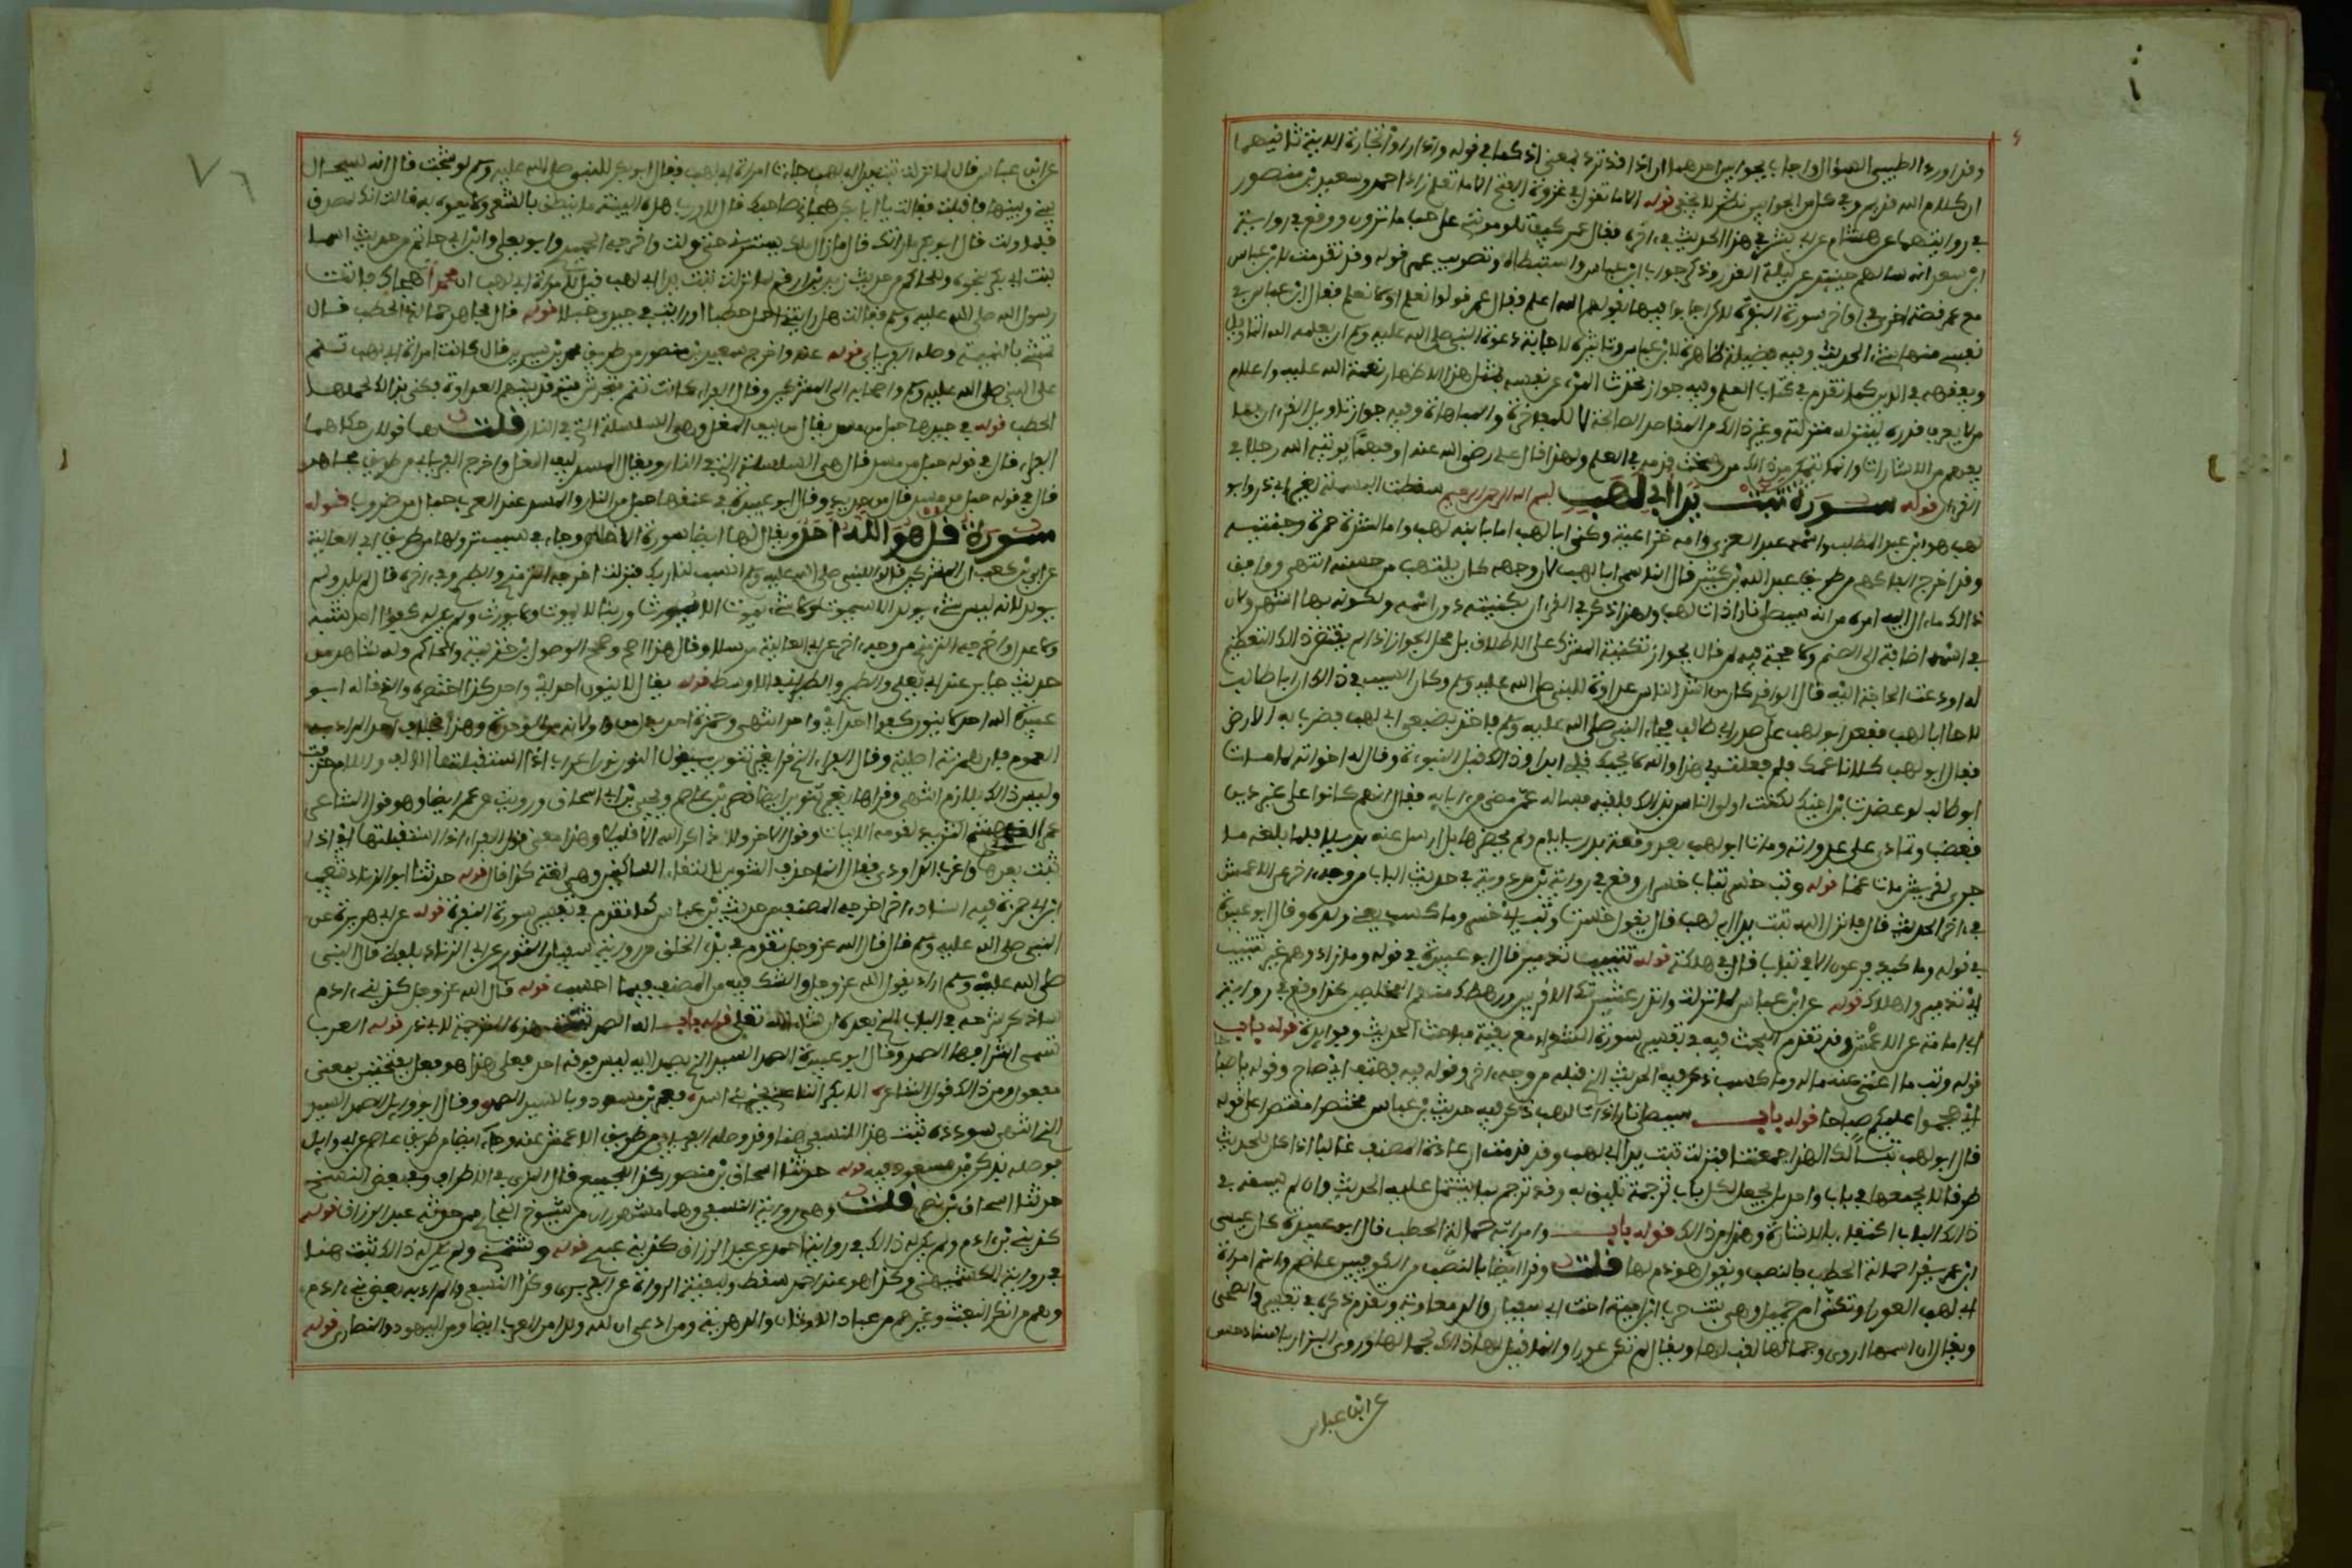 وقد اورد الطيبي السؤال واجاب بجوابين احدهما ان اذا قد ترد بمعنى اذ كما في قوله واذا راوا تجارة الاية ثانيهما
ان كلام الله قديم وفي كل من الجوابين نظر لا يخفى قوله الا ما تقول في غزوة الفتح الا ما تعلم زاد احمد وسعيد بن منصور
في روايتهما عن هشام عن ابي بشر في هذا الحديث في ءاخره فقال عمر كيف تلومونني على حب ما ترون ووقع في رواية
ابن سعد انه سالهم حينئذ عن ليلة القدر وذكر جواب ابن عباس واستنباطه وتصويب عمر قوله وقد تقدمت لابن عباس
مع عمر قصة اخرى في اواخر سورة البقرة لكن اجابوا فيها بقولهم الله اعلم فقال عمر قولوا نعلم او لا نعلم فقال ابن عباس في
نفسي منها شيء الحديث وفيه فضيلة ظاهرة لابن عباس وتاثير لاجابة دعوة النبي صلى الله عليه وسلم ان يعلمه الله التاويل
ويفقهه في الدين كما تقدم في كتاب العلم وفيه جواز تحديث المرء عن نفسه بمثل هذا لاظهار نعمة الله عليه واعلام
من لا يعرف قدره لينزله منزلته وغير ذلك من المقاصد الصالحة لا للمفاخرة والمباهاة وفيه جواز تاويل القرءان بما
يفهم من الاشارات وانما يتمكن من ذلك من رسخت قدمه في العلم ولهذا قال علي رضي الله عنه او فهما يوتيه الله رجلا في
القرءان قوله سورة تبت يدا ابي لهب بسم الله الرحمن الرحيم سقطت البسملة لغير ابي ذر وابو
لهب هو ابن عبد المطلب واسمه عبد العزى وامه خزاعية وكني ابا لهب اما بابنه لهب واما لشدة حمرة وجنتيه
وقد اخرج الفاكهي من طريق عبد الله بن كثير قال انما سمي ابا لهب لان وجهه كان يلتهب من حسنه انتهى ووافق
ذلك ما ءال اليه امره من انه سيصلى نارا ذات لهب ولهذا ذكر في القرءان بكنيته دون اسمه ولكونه بها اشهر ولان
في اسمه اضافة الى الصنم ولا حجة فيه لمن قال بجواز تكنية المشرك على الاطلاق بل محل الجواز اذا لم يقتض ذلك التعظيم
له او دعت الحاجة اليه قال الواقدي كان من اشد الناس عداوة للنبي صلى الله عليه وسلم وكان السبب في ذلك ان ابا طالب
لاحا ابا لهب فقعد ابو لهب على صدر ابي طالب فجاء النبي صلى الله عليه وسلم فاخذ بضبعي ابي لهب فضرب به الارض
فقال ابو لهب كلانا عمك فلم فعلت بي هذا والله لا يحبك قلبي ابدا وذلك قبل النبوءة وقال له اخوته لما مات
ابو طالب لو عضدت ابن اخيك لكنت اولى الناس بذلك فلقيه فساله عمن مضى من ابايه فقال انهم كانوا على غير دين
فغضب وتمادى على عداوته ومات ابو لهب بعد وقعة بدر بايام ولم يحضرها بل ارسل عنه بديلا فلما بلغه ما
جرى لقريش مات غما قوله وتب خسر تباب خسران وقع في رواية بن مردويه في حديث الباب من وجه ءاخر عن الاعمش
في ءاخر الحديث قال فانزل الله تبت يدا ابي لهب قال يقول خسرت وتب اي خسر وما كسب يعني ولده وقال ابو عبيدة
في قوله وما كيد فرعون الا في تباب قال في هلكة قوله تتبيب تدمير قال ابو عبيدة في قوله وما زادوهم غير تتبيب
اي تدمير واهلاك قوله عن ابن عباس لما نزلت وانذر عشيرتك الاقربين ورهطك منهم المخلصين كذا وقع في رواية
ابي اسامة عن الاعمش وقد تقدم البحث فيه في تفسير سورة الشعراء مع بقية مباحث الحديث وفوايده قوله باب
قوله وتب ما اغنى عنه ماله وما كسب ذكر فيه الحديث الذي قبله من وجه ءاخر وقوله فيه فهتف اي صاح وقوله يا صباحا
اي هجموا عليكم صباحا قوله باب سيصلى نارا ذات لهب ذكر فيه حديث بن عباس مختصرا مقتصرا على قوله
قال ابو لهب تبا لك الهذا جمعتنا فنزلت تبت يدا ابي لهب وقد قدمت ان عادة المصنف غالبا اذا كان للحديث
طرق الا يجمعها في باب واحد بل يجعل لكل باب ترجمة تليق به وقد ترجم بما يشتمل عليه الحديث وان لم يسقه في
ذلك الباب اكتفاء بالاشارة وهذا من ذلك قوله باب وامراته حمالة الحطب قال ابو عبيدة كان عيسى
ابن عمر يقرا حمالة الحطب بالنصب ويقول هو ذم لها قلت وقرا ايضا بالنصب من الكوفيين عاصم واسم امراة
ابي لهب العورا وتكنى ام جميل وهي بنت حرب ابن امية اخت ابي سفيان والد معاوية وتقدم ذكرها في تفسير والضحى
ويقال ان اسمها اروى وجمالها لقب لها ويقال لم تكن عورا وانما قيل لها ذلك لجمالها وروى البزار باسناد حسن
عن ابن عباس
عن ابن عباس قال لما نزلت تبت يدا ابي لهب جاءت امراة ابي لهب فقال ابو بكر للنبي صلى الله عليه وسلم لو تنحيت قال انه سيحال
بيني وبينها فاقبلت فقالت يا ابا بكر هجاني صاحبك قال لا ورب هذه البنية ما ينطق بالشعر ولا يفوه به قالت انك لمصدق
فلما ولت قال ابو بكر ما راتك قال ما زال ملك يسترني حتى ولت واخرجه الحميدي وابو يعلى وابن ابي حاتم من حديث اسما
بنت ابي بكر بنحوه وللحاكم من حديث زيد بن ارقم لما نزلت تبت يدا ابي لهب قيل لامراة ابي لهب ان محمدا هجاك فاتت
رسول الله صلى الله عليه وسلم فقالت هل رايتني احمل حطبا او رايت في جيدي حبلا قوله قال مجاهد حمالة الحطب قال
تمشي بالنميمة وصله الفريابي قوله عنه واخرج سعيد بن منصور من طريق محمد بن سيرين قال كانت امراة ابي لهب تنم
على النبي صلى الله عليه وسلم واصحابه الى المشركين وقال الفراء كانت تنم فتحرش فتوقد بينهم العداوة فكنى بذلك بحملها
الحطب قوله في جيدها حبل من مسد يقال من ليف المقل وهي السلسلة التي في النار قلت هما قولان حكاهما
الفراء قال في قوله حبل من مسد قال هي السلسلة التي في النار ويقال المسد ليف المقل واخرج الفريابي من طريق مجاهد
قال في قوله حبل من مسد قال من حديد وقال ابو عبيدة في عنقها حبل من النار والمسد عند العرب حبال من ضروب قوله
سورة قل هو الله احد ويقال لها ايضا سورة الاخلاص وجاء في سبب نزولها من طريق ابي العالية
عن ابي بن كعب ان المشركين قالوا للنبي صلى الله عليه وسلم انسب لنا ربك فنزلت اخرجه الترمذي والطبري وفي ءاخره قال لم يلد ولم
يولد لانه ليس شيء يولد الا سيموت ولا شيء يموت الا يورث وربنا لا يموت ولا يورث ولم يكن له كفؤا احد شبه
ولا عدل واخرجه الترمذي من وجه ءاخر عن ابي العالية مرسلا وقال هذا اصح وصحح الموصول ابن خزيمة والحاكم وله شاهد من
حديث جابر عند ابي يعلى والطبري والطبراني في الاوسط قوله يقال لا ينون احد اي واحد كذا اختصره والذي قاله ابو
عبيدة الله احد لا ينون كفؤا احد اي واحد انتهى وهمزة احد بدل من واو لانه من الوحدة وهذا بخلاف احد المراد به
العموم فان همزته اصلية وقال الفراء الذي قرا بغير تنوين يقول النون نون اعراب اذا استقبلتها الالف واللام حذفت
وليس ذلك بلازم انتهى وقراها بغير تنوين ايضا نصر بن عاصم ويحيى بن ابي اسحاق ورويت عن عمر ايضا وهو قول الشاعر
عمرو الذي هشم الثريد لقومه الابيات وقول الاخر ولا ذاكر الله الا قليلا وهذا معنى قول الفراء اذا استقبلتها اي اذا
اتت بعدها واغرب الداودي فقال انما حذف التنوين لالتقاء الساكنين وهي لغة كذا قال قوله حدثنا ابو الزناد شعيب
ابن ابي حمزة فيه اسناد ءاخر اخرجه المصنف من حديث بن عباس كما تقدم في تفسير سورة البقرة قوله عن ابي هريرة عن
النبي صلى الله عليه وسلم قال قال الله عز وجل تقدم في بدء الخلق من رواية سفيان الثوري عن ابي الزناد بلفظ قال النبي
صلى الله عليه وسلم اراه يقول الله عز وجل والشك فيه من المصنف فيما احسب قوله قال الله عز وجل كذبني ءادم
ساذكر شرحه في الباب الذي بعده ان شاء الله تعلى قوله باب الله الصمد ثبتت هذه الترجمة لابي ذر قوله العرب
تسمي اشرافها الصمد وقال ابو عبيدة الصمد السيد الذي يصمد اليه ليس فوقه احد فعلى هذا هو فعل بفتحتين بمعنى
مفعول ومن ذلك قول الشاعر الا بكر الناعي بخيري بني اسد بعمرو بن مسعود وبالسيد الصمد وقال ابو وايل الصمد السيد
الذي انتهى سودده ثبت هذا للنسفي هنا وقد وصله الفريابي من طريق الاعمش عنه وجاء ايضا من طريق عاصم عن ابي وايل
فوصله بذكر بن مسعود فيه قوله حدثنا اسحاق بن منصور كذا للجميع قال المزي في الاطراف وفي بعض النسخ
حدثنا اسحاق بن نصر قلت وهي رواية النسفي وهما مشهوران من شيوخ البخاري ممن حدثه عبد الرزاق قوله
كذبني بن ءادم ولم يكن له ذلك في رواية احمد عن عبد الرزاق كذبني عبدي قوله وشتمني ولم يكن له ذلك ثبت هنا
في رواية الكشميهني وكذا هو عند احمد وسقط لبقية الرواة عن الفربري وكذا النسفي والمراد به بعض بني ءادم
وهم من انكر البعث وغيرهم من عباد الاوثان والدهرية ومن ادعى ان لله ولدا من العرب ايضا ومن اليهود والنصارى قوله